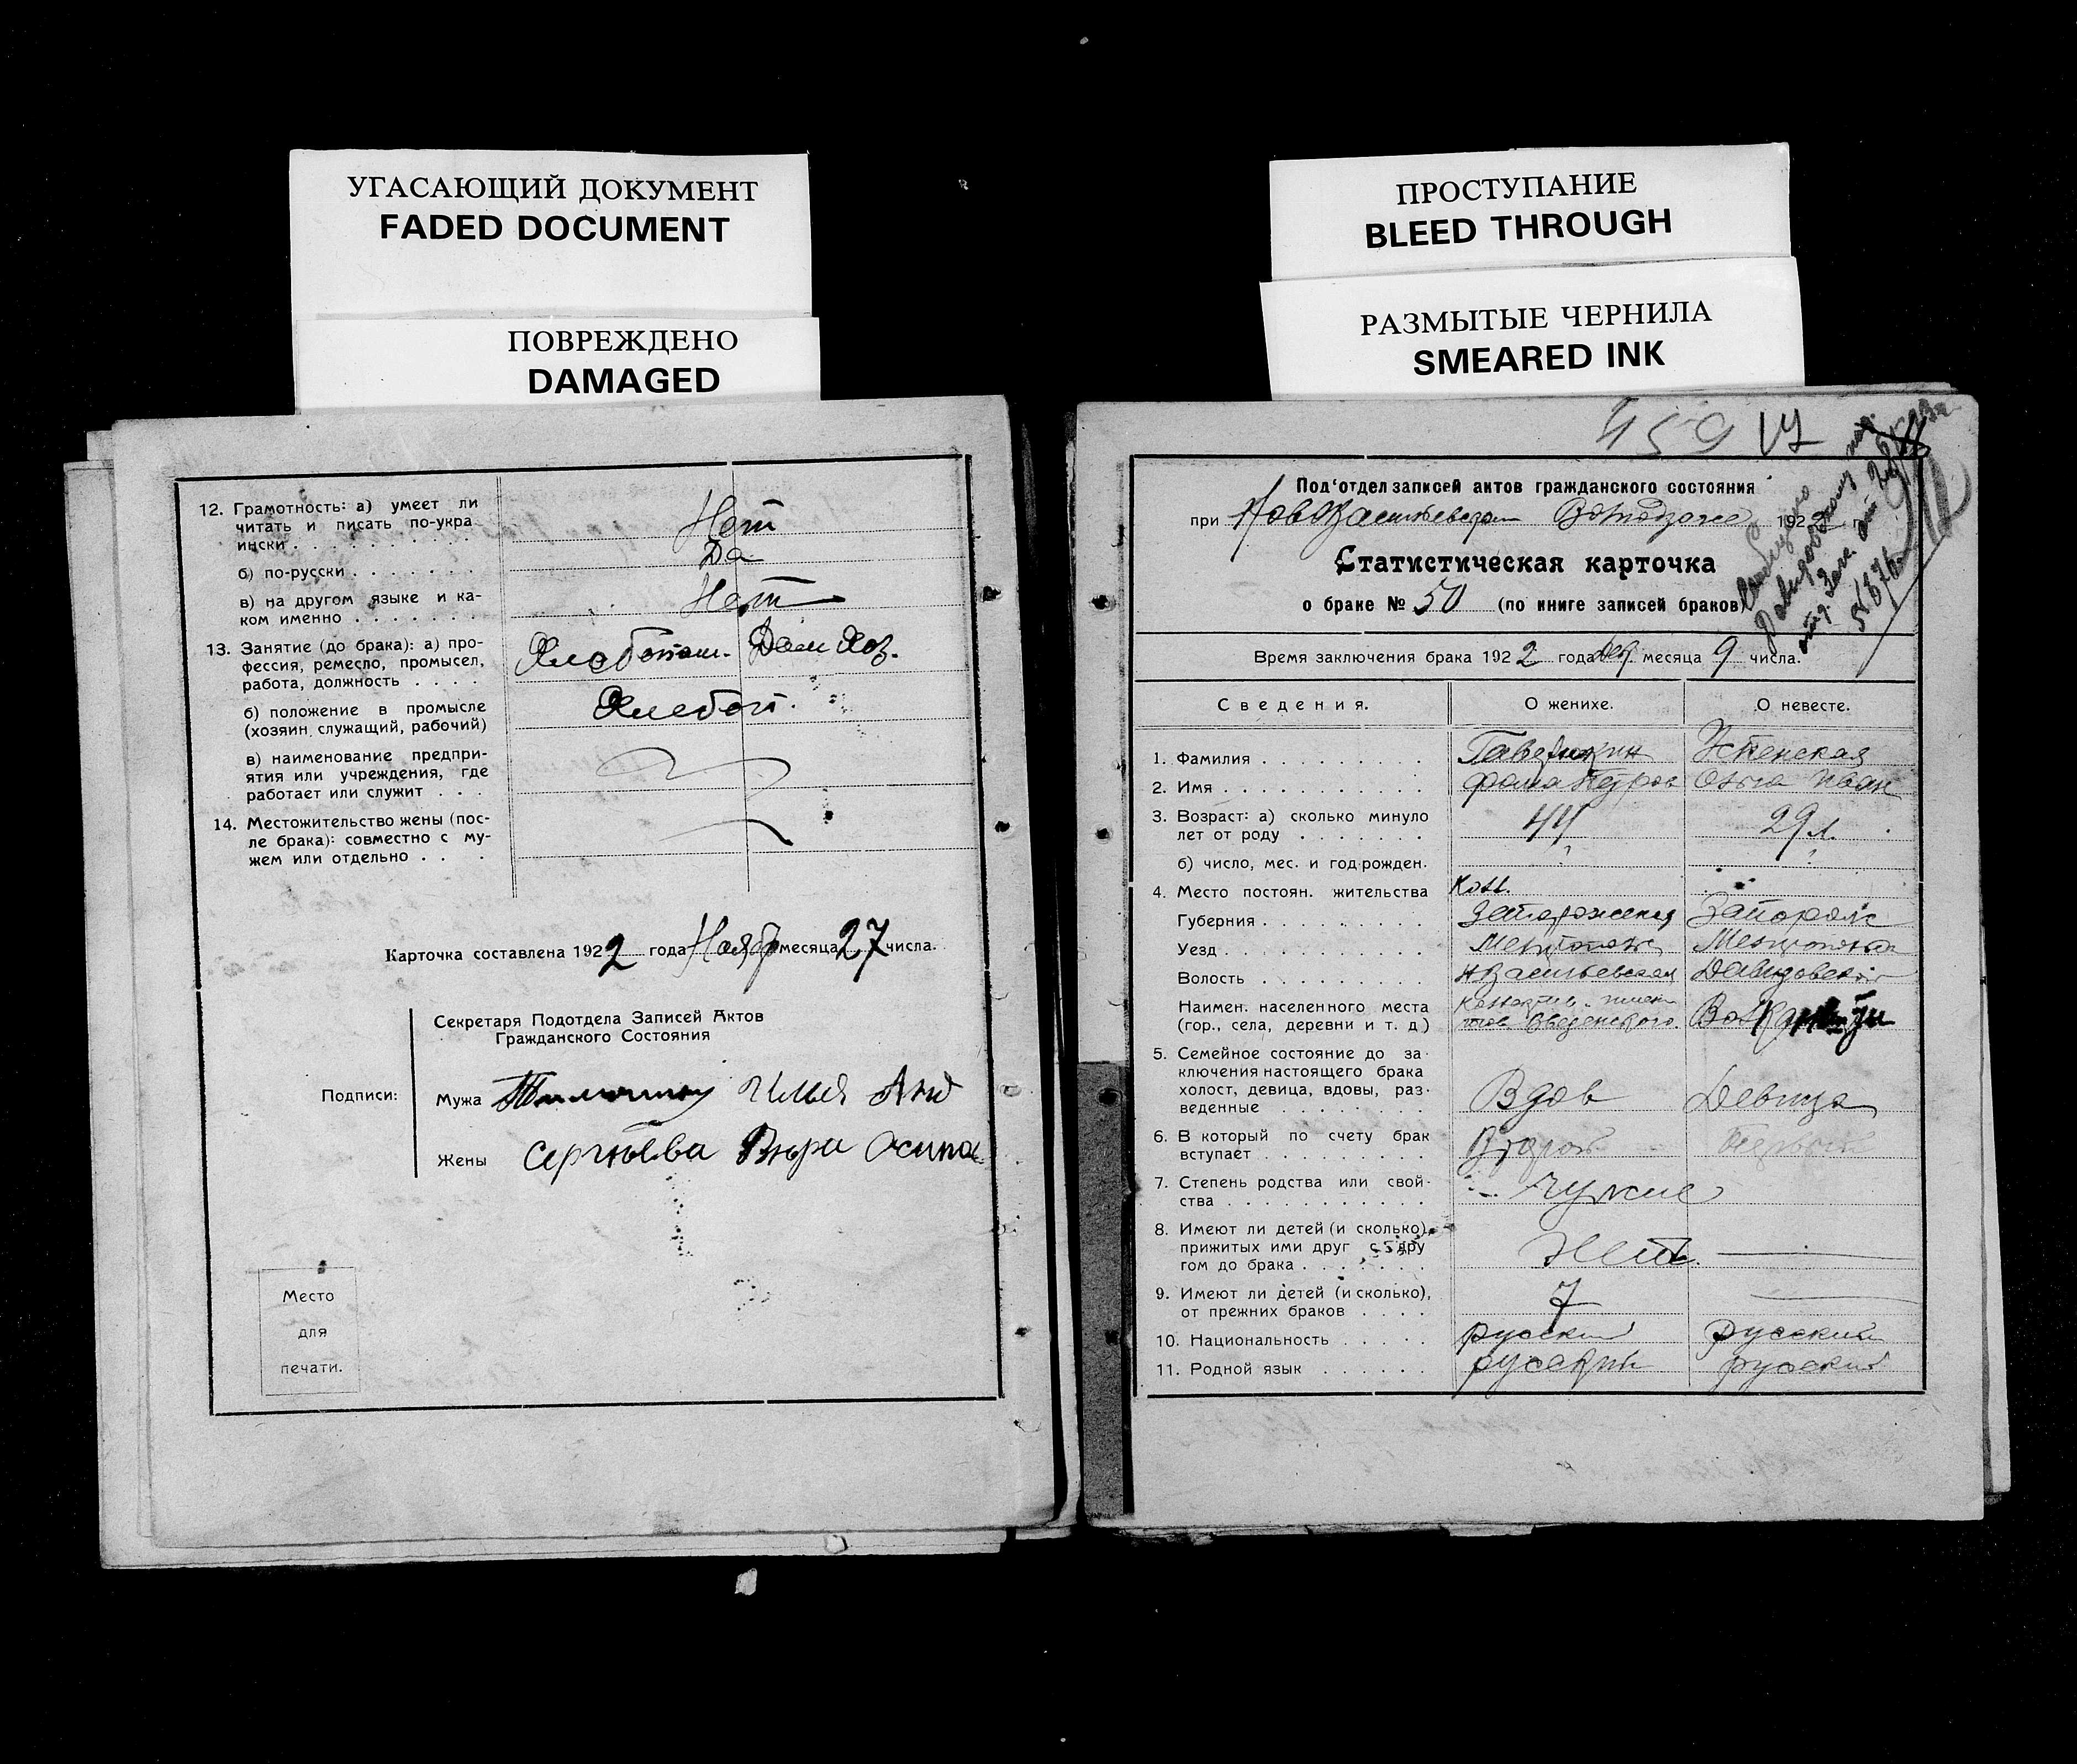 УГАСАЮЩИЙ ДОКУМЕНТ
FADED DOCUMENT
ПОВРЕЖДЕНО
DAMAGED
12. Грамотность: а) умеет ли
читать и писать по-укра
ински
Нет
б) по-русски
Да
в) на другом языке и ка-
ком именно
Нет
13. Занятие (до брака): а) про-
фессия, ремесло, промысел,
работа, должность
Дом Хоз.
б) положение в промысле
(хозяин, служащий, рабочий)
в) наименование предпри-
ятия или учреждения, где
работает или служит
14. Местожительство жены (пос-
ле брака): совместно с му-
жем или отдельно
Карточка составлена 1922 года Ноябр месяца 27 числа.
Секретаря Подотдела Записей Актов
Гражданского Состояния
Подписи:
Мужа Илья Анд
Жены Сергеева Осипов
Место
для
печати.
ПРОСТУПАНИЕ
BLEED THROUGH
РАЗМЫТЫЕ ЧЕРНИЛА
SMEARED INK
459
Под'отдел записей актов гражданского состояния
при 192
Статистическая карточка
о браке № 50 (по книге записей браков)
Время заключения брака 1922 года месяца 9 числа.
Сведения. О женихе. О невесте.
1. Фамилия Успенская
2. Имя Фома Петров Ольга Иван
3. Возраст: а) сколько минуло
лет от роду 44 29 л.
б) число, мес. и год рожден. ? ?
4. Место постоян. жительства
Губерния Запорожская Запорож
Уезд
Волость Н Васильевская Давидовск
Наимен. населенного места
(гор., села, деревни и т. д.)
5. Семейное состояние до за-
ключения настоящего брака
холост, девица, вдовы, раз-
веденные Вдов Девица
6. В который по счету брак
вступает Второй Первый
7. Степень родства или свой-
ства Чужие
8. Имеют ли детей (и сколько),
прижитых ими друг с дру
гом до брака Нет
9. Имеют ли детей (и сколько),
от прежних браков 7
10. Национальность русский Русский
11. Родной язык русский русский